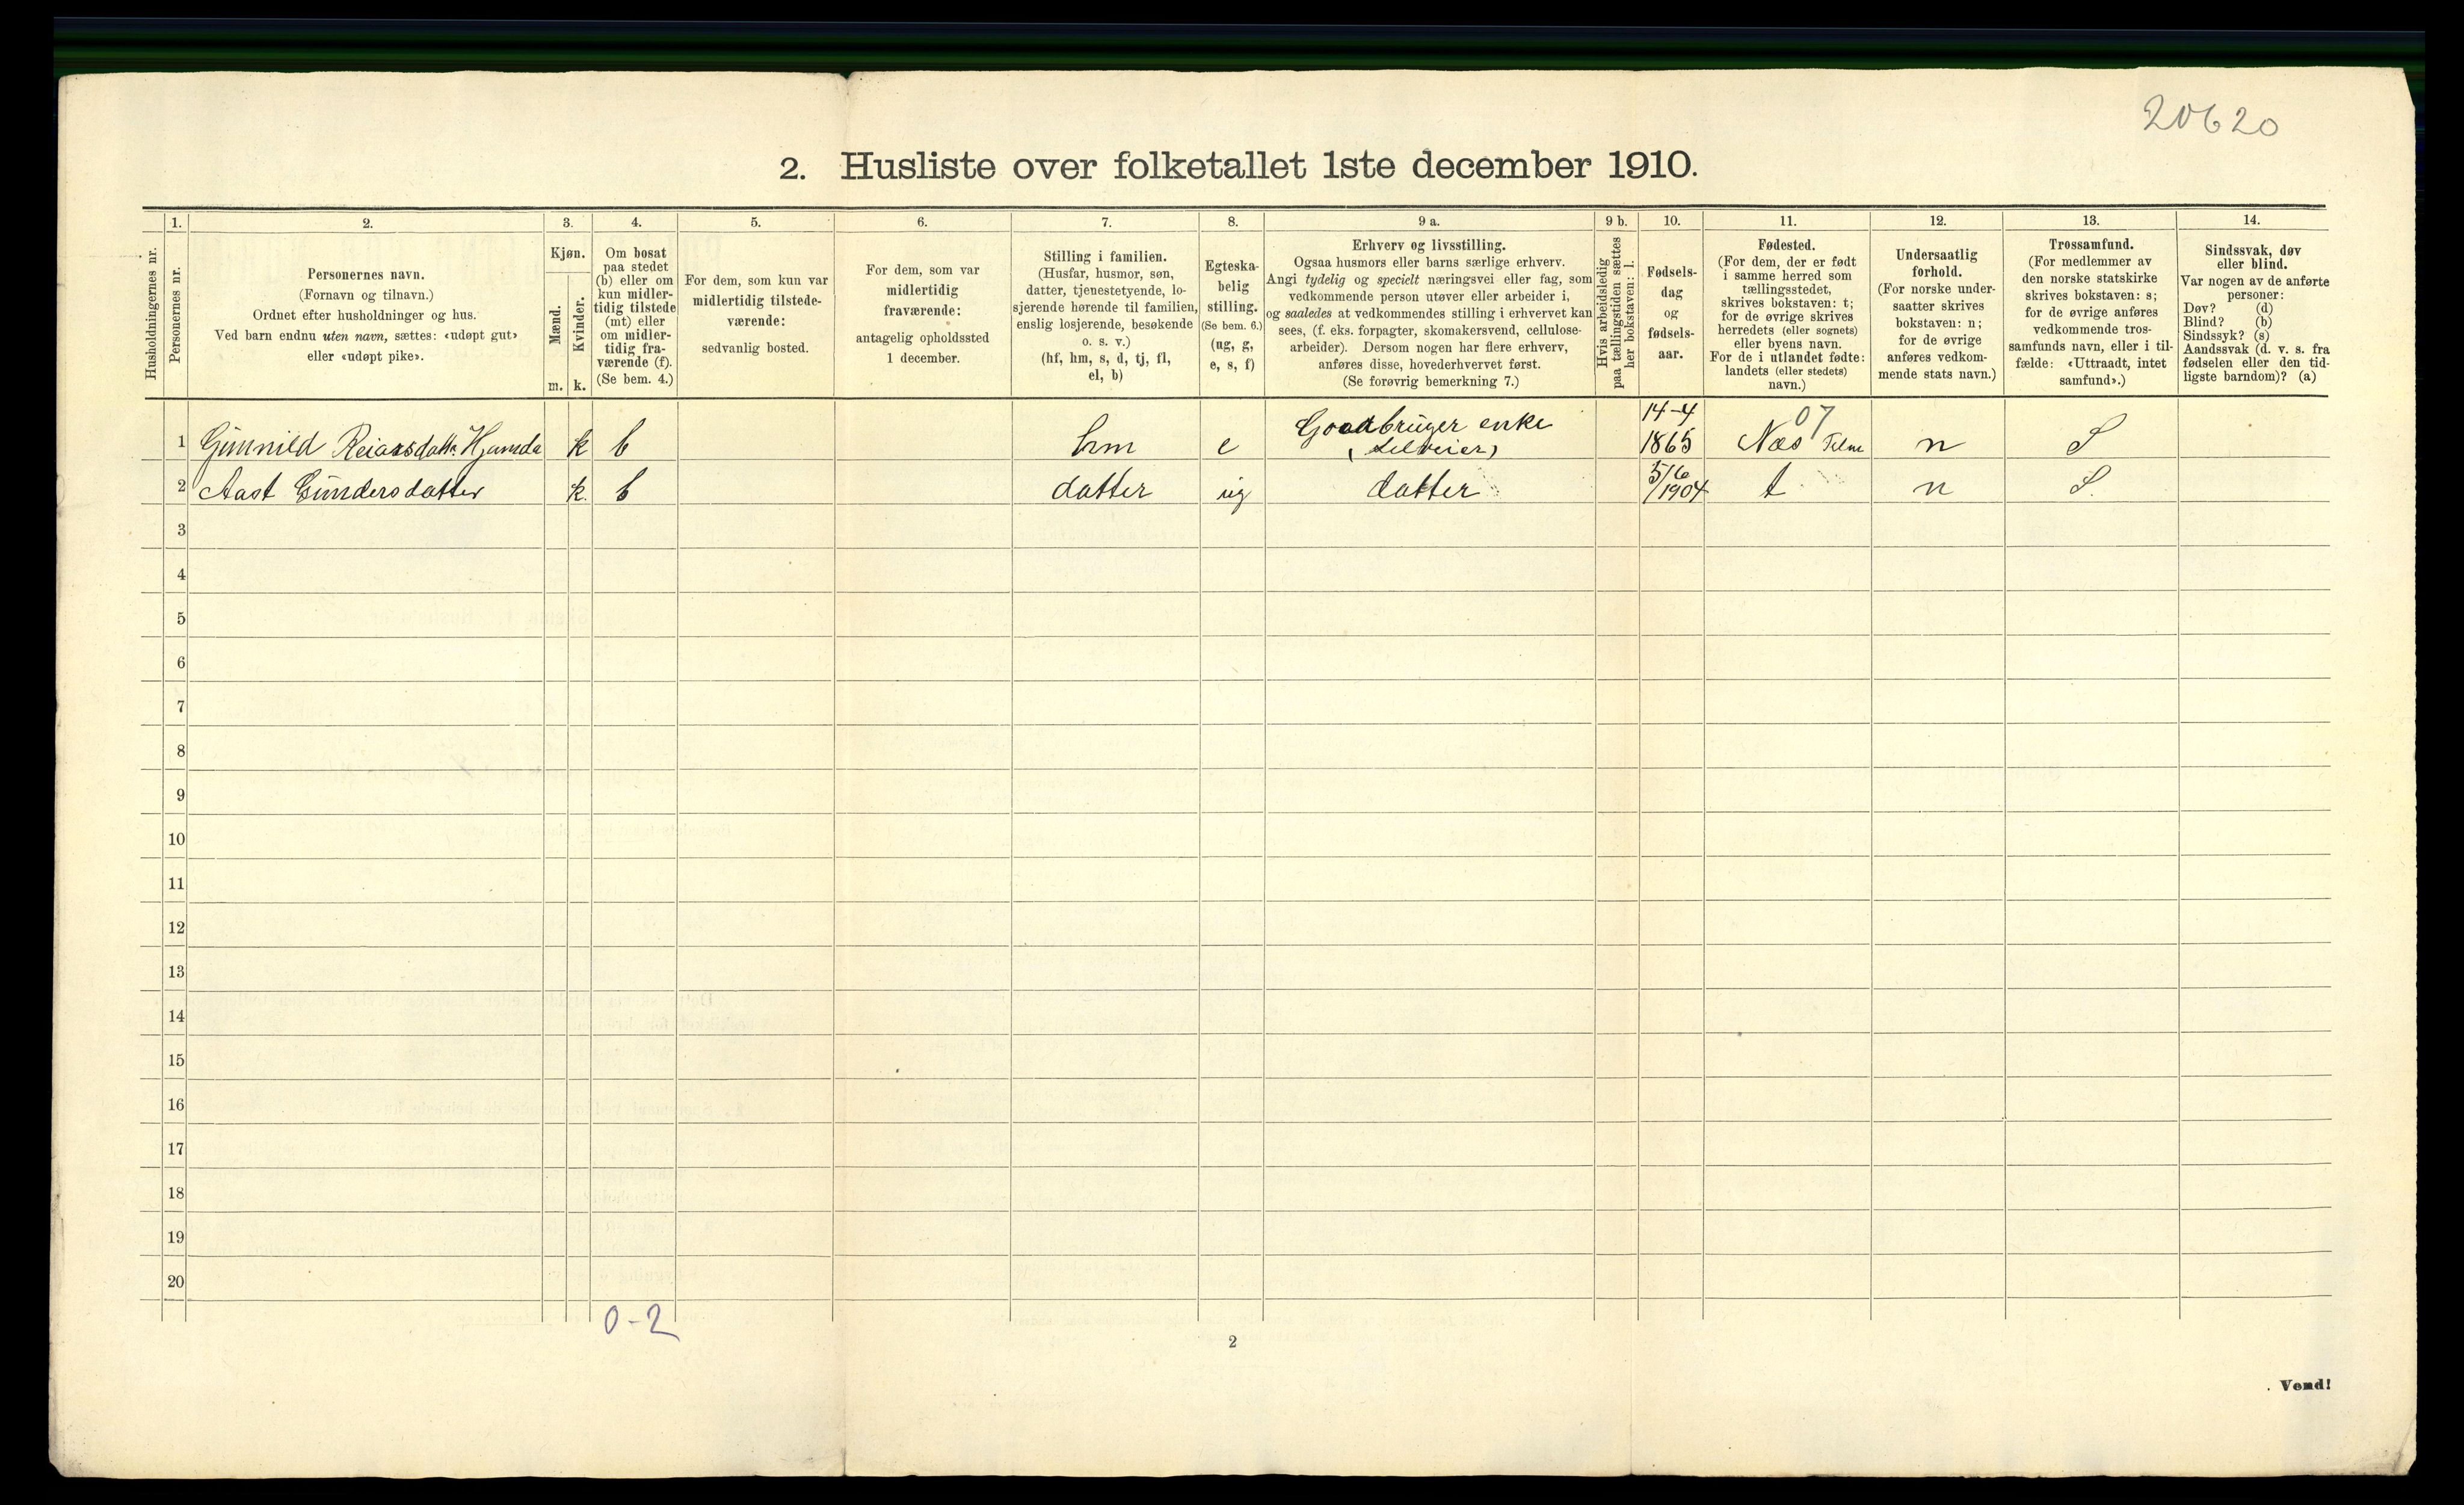 20620
2. Husliste over folketallet 1ste december 1910.
Husholdningernes nr.
1.
Personernes nr.
2.
Personernes navn.
(Fornavn og tilnavn.)
Ordnet efter husholdninger og hus.
Ved barn endnu uten navn, sættes: «udøpt gut»
eller «udøpt pike».
3.
Kjøn.
Mænd.
m.
Kvinder.
k.
4.
Om bosat
paa stedet
(b) eller om
kun midler-
tidig tilstede
(mt) eller
om midler-
tidig fra-
værende (f).
(Se bem. 4.)
5.
For dem, som kun var
midlertidig tilstede-
værende:
sedvanlig bosted.
6.
For dem, som var
midlertidig
fraværende:
antagelig opholdssted
1 december.
7.
Stilling i familien.
(Husfar, husmor, søn,
datter, tjenestetyende, lo-
sjerende hørende til familien,
enslig losjerende, besøkende
o. s. v.)
(hf, hm, s, d, tj, fl,
el, b)
8.
Egteska-
belig
stilling.
(Se bem. 6.)
(ug, g,
e, s, f)
9 a.
Erhverv og livsstilling.
Ogsaa husmors eller barns særlige erhverv.
Angi tydelig og specielt næringsvei eller fag, som
vedkommende person utøver eller arbeider i,
og saaledes at vedkommendes stilling i erhvervet kan
sees, (f. eks. forpagter, skomakersvend, cellulose-
arbeider). Dersom nogen har flere erhverv,
anføres disse, hovederhvervet først.
(Se forøvrig bemerkning 7.)
9 b.
Hvis arbeidsledig
paa tællingstiden sættes
her bokstaven: l.
10.
Fødsels-
dag
og
fødsels-
aar.
11.
Fødested.
(For dem, der er født
i samme herred som
tællingsstedet,
skrives bokstaven: t;
for de øvrige skrives
herredets (eller sognets)
eller byens navn.
For de i utlandet fødte:
landets (eller stedets)
navn.)
12.
Undersaatlig
forhold.
(For norske under-
saatter skrives
bokstaven: n;
for de øvrige
anføres vedkom-
mende stats navn.)
13.
Trossamfund.
(For medlemmer av
den norske statskirke
skrives bokstaven: s;
for de øvrige anføres
vedkommende tros-
samfunds navn, eller i til-
fælde: «Uttraadt, intet
samfund».)
14.
Sindssvak, døv
eller blind.
Var nogen av de anførte
personer:
Døv? (d)
Blind? (b)
Sindssyk? (s)
Aandssvak (d. v. s. fra
fødselen eller den tid-
ligste barndom)? (a)
1 Gunnild Reiarsdatt. k b hm e Gaardbruger enke (Selveier) 14-4 1865 Næs 07 n S
2 Aast Gundersdatter k. b datter ug datter 5/6 1904 t n S.
3
4
5
6
7
8
9
10
11
12
13
14
15
16
17
18
19
20
0-2
2
Vend!